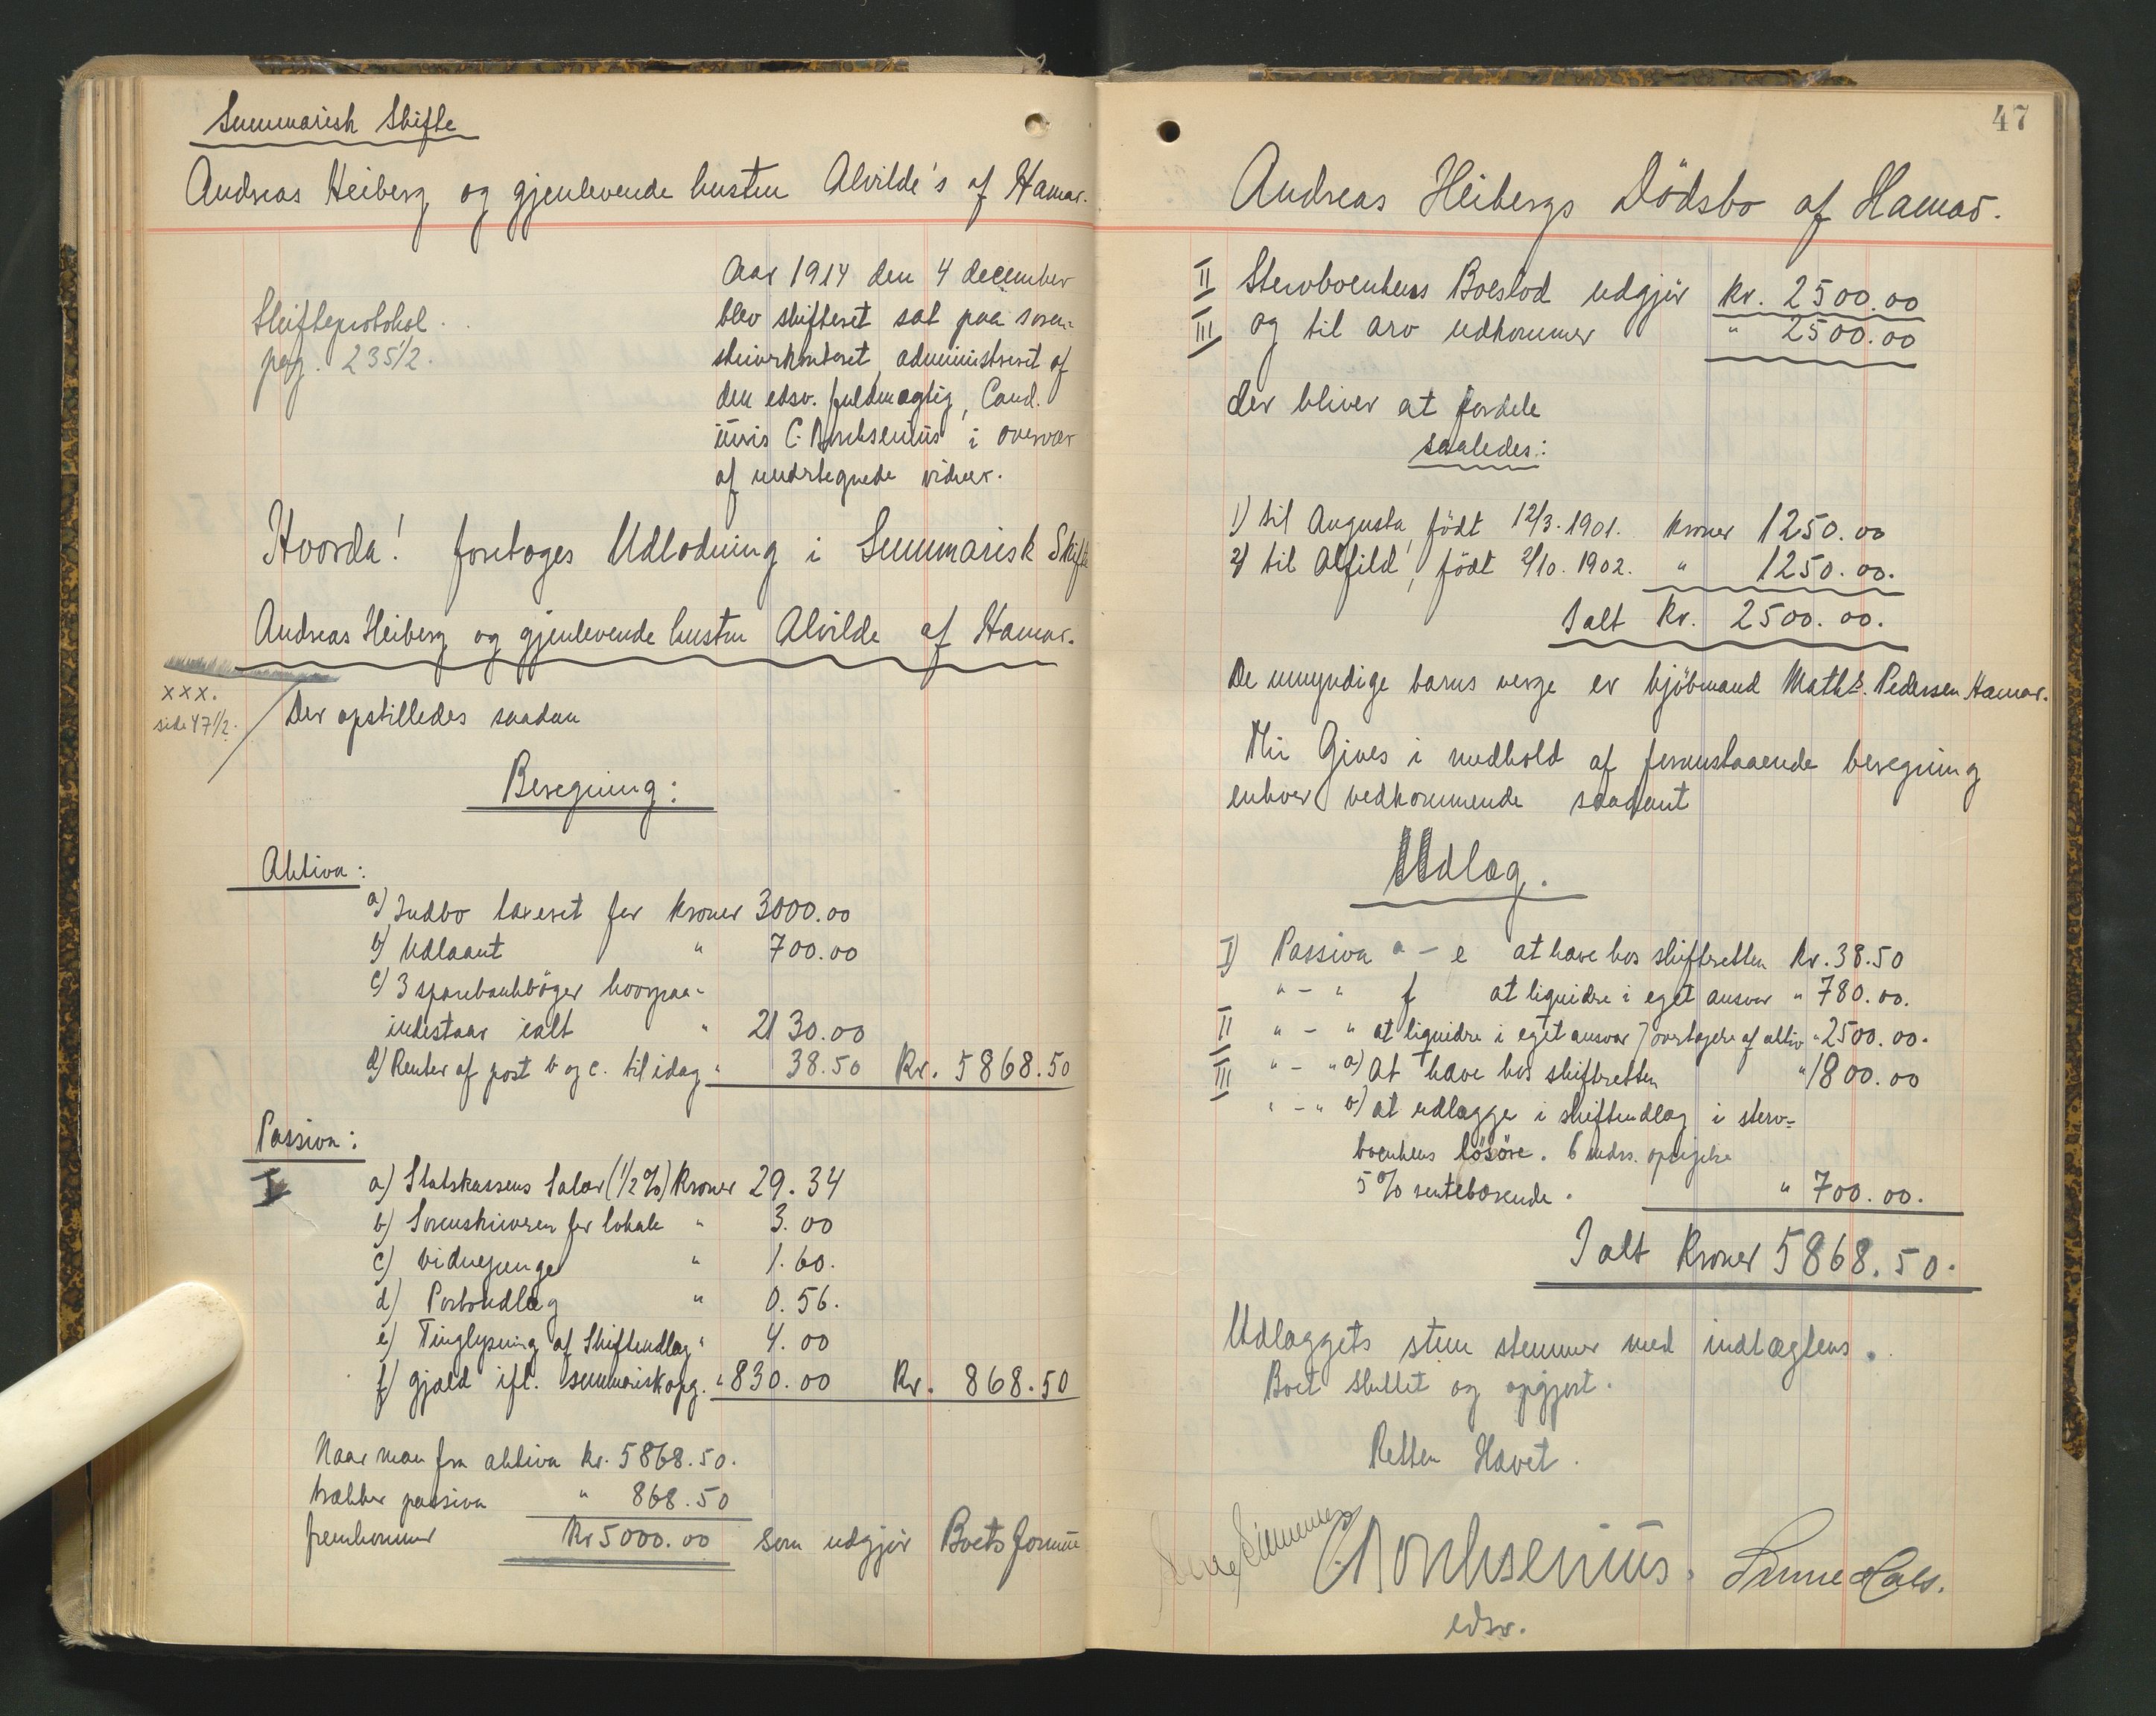 Summarisk Skifte
Andreas Heiberg og gjenlevende hustru Alvilde's af Hamar.
Skifteprotokol
pag. 235 1/2.
Aar 1914 den 4 december
blev skifteret sat paa soren-
skriverkontoret, administreret af
den edsv. fuldmægtig, Cand.
iuris C. Borchsenius i overvær
af undertegnede vidner.
Hvorda! foretoges Udlodning i Summarisk Skifte
Andreas Heiberg og gjenlevende hustru Alvilde af Hamar.
xxx.
side 47 1/2.
Der opstilledes saadan
Beregning:
Aktiva:
a) Indbo taxeret for kroner 3000.00
b) Udlaant " 700.00
c) 3 sparebankbøger hvorpaa-
indestaar ialt " 2130.00
d) Renter af post b og c. til idag " 38.50 Kr. 5868.50
Passiva:
I a) Statskassens Salær (1/2%) Kroner 29.34
b) Sorenskriveren for lokale " 3.00
c) Vidnepenge " 1.60.
d) Portoudlæg " 0.56.
e) Tinglysning af Skifteudlæg " 4.00
f) gjæld ifl. summarisk opg. " 830.00 Kr. 868.50
Naar man fra aktiva kr. 5868.50.
trækker passiva " 868.50
fremkommer Kr 5000.00 som udgjør Boets formue
47
Andreas Heibergs Dödsbo af Hamar.
II Stervboenkens Boeslod udgjør kr. 2500.00
III og til arv udkommer " 2500.00
der bliver at fordele
saaledes:
1) til Augusta, født 12/3. 1901. kroner 1250.00
2) til Alfild, født 2/10. 1902. " 1250.00.
Ialt kr. 2500.00.
De umyndige barns verge er kjöbmand Maths. Pedersen Hamar.
Thi Gives i medhold af foranstaaende beregning
enhver vedkommende saadant
Udlæg.
I) Passiva a - e at have hos skifteretten Kr. 38.50
" - " f at liquidre i eget ansvar " 780.00.
II " - " at liquidre i eget ansvar overtagere af aktiv " 2500.00.
III " - " a) At have hos skifteretten " 1800.00
" - " b) at udlægge i skifteudlæg i sterv-
boenkens lösöre. 6 mdrs. opsigelse
5% rentebærende. " 700.00.
Ialt Kroner 5868.50.
Udlæggets sum stemmer med indtægtens.
Boet sluttet og opgjort.
Retten Hævet.
C Borchsenius.
edsv.